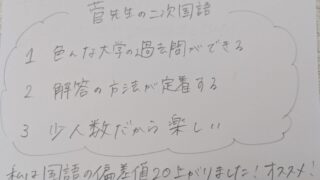 菅先生の二次国語
1 色んな大学の過去問ができる
2 解答の方法が定着する
3 少人数だから楽しい
私は国語の偏差値20上がりました!オススメ!